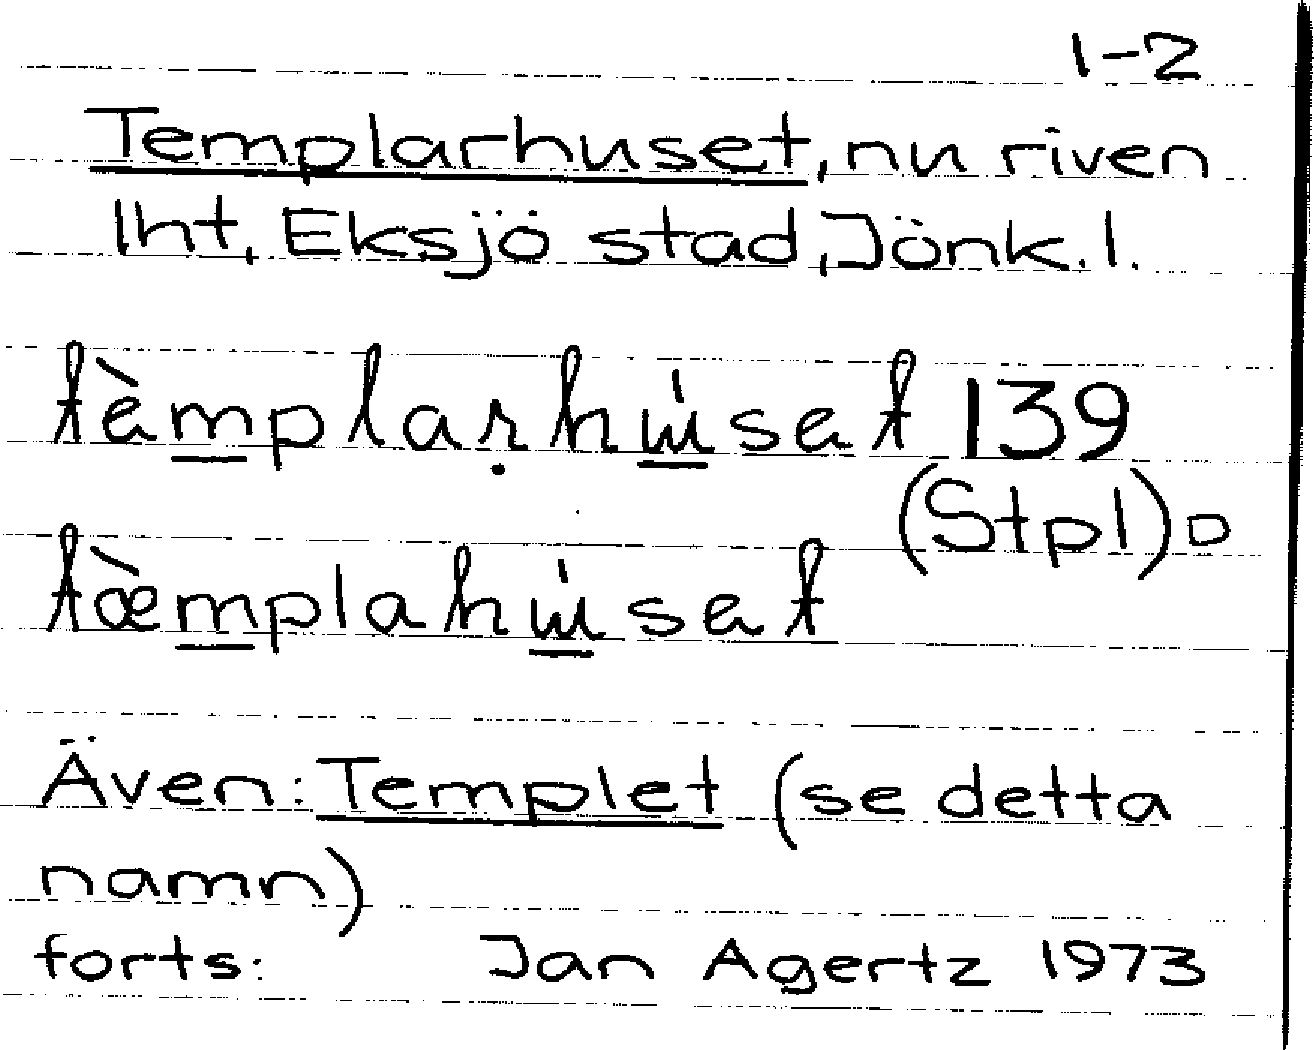 1-2
Templarhuset, nu riven
lht, Eksjö stad, Jönk. l.
tèmplarhu̇set 139
(Stpl) □
tæ̀mplahu̇set
Även: Templet (se detta
namn)
forts: Jan Agertz 1973